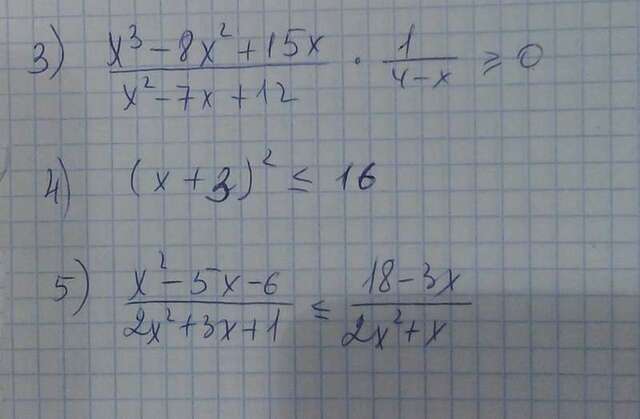 3) (x³ - 8x² + 15x)/(x² - 7x + 12) · 1/(4 - x) ≥ 0
4) (x + 3)² ≤ 16
5) (x² - 5x - 6)/(2x² + 3x + 1) ≤ (18 - 3x)/(2x² + x)